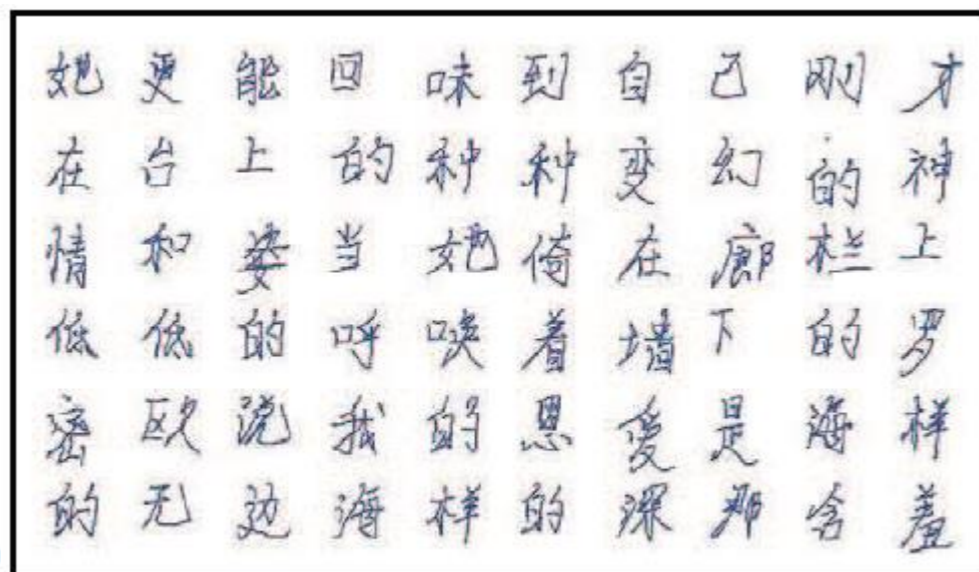 她更能回味到自己刚才
在台上的种种变幻的神
情和姿当她倚在廊栏上
低低的呼唤着墙下的罗
密欧说我的恩爱是海样
的无边海样的深那含羞